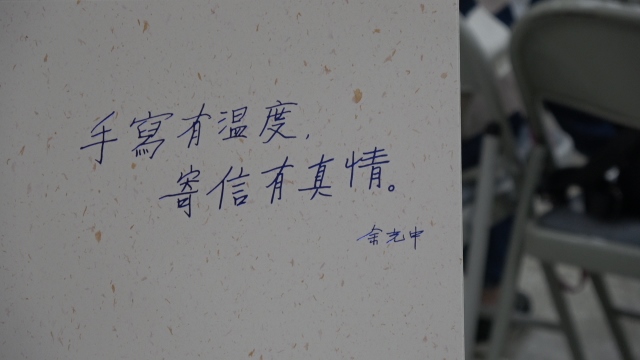 手寫有温度，
寄信有真情。
余光中